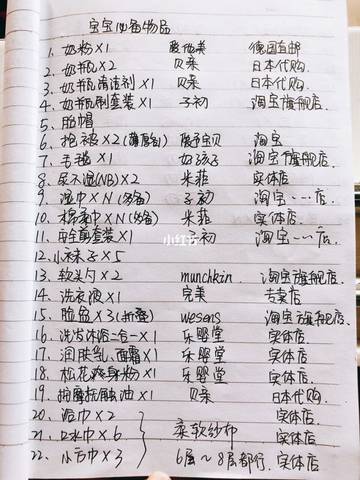 宝宝必备物品
1. 奶粉×1 爱他美 德国直邮
2. 奶瓶×2 贝亲 日本代购.
3. 奶瓶清洁剂×1 贝亲 日本代购
4. 奶瓶刷套装×1 子初 淘宝旗舰店.
5. 胎帽
6. 抱被×2(薄厚各1) 宝贝 淘宝
7. 毛毯×1 好孩子 淘宝旗舰店.
8. 尿不湿(NB)×2 米菲 实体店
9. 湿巾×N(多备) 子初 淘宝……店.
10. 棉柔巾×N(多备) 米菲 实体店.
11. 安全剪套装×1 子初 淘宝……店
小红书
12. 小袜子×5
13. 软头勺×2 munchkin. 淘宝旗舰店.
14. 洗衣液×1 完美 专卖店
15. 脸盆×3(折叠) wesens 淘宝旗舰店.
16. 洗发沐浴二合一×1 乐婴堂 实体店
17. 润肤乳、面霜×1 乐婴堂 实体店
18. 松花爽身粉×1 乐婴堂 实体店
19. 按摩抚触油×1 贝亲 日本代购.
20. 浴巾×2 实体店
21. 口水巾×6 柔软纱布 实体店
22. 小方巾×3 6层~8层都行. 实体店